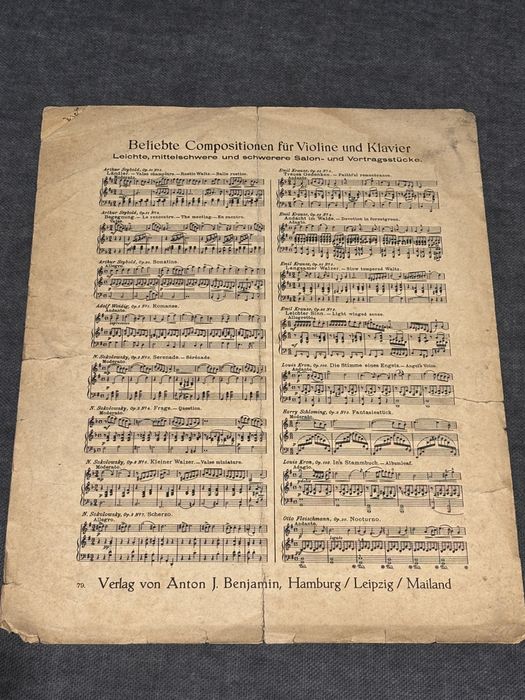 Beliebte Compositionen für Violine und Klavier
Leichte, mittelschwere und schwerere Salon- und Vortragsstücke.
Arthur Seybold, Op.
Ländler. — Valse champêtre. — Rustic Waltz. — Ballo rustico.
Moderato.
Arthur Seybold, Op.
Begegnung. — La rencontre. — The meeting. — En
Arthur Seybold, Op. Sonatine.
Allegro.
Adolf Wehdig, Op. Nº1. Romanze.
Andante.
N. Sokolowsky, Op. 3 Nº3. Serenade. — Sérénade.
Moderato.
N. Sokolowsky, Op. 3 Nº4. Frage. — Question.
Moderato.
N. Sokolowsky, Op. 3 Nº6. Kleiner Walzer. — Valse miniature.
Moderato.
N. Sokolowsky, Op. 3 Nº7. Scherzo.
Allegro.
Emil Krause, Op.
Treues Gedenken. — Faithful remembrance.
Moderato.
Emil Krause, Op.
Andacht im Walde. — Devotion in
Adagio.
Emil Krause, Op.
Langsamer Walzer. — Slow tempered Waltz.
Emil Krause, Op.
Leichter Sinn. — Light winged sense.
Allegretto.
Louis Kron, Op. Die Stimme eines Engels. — Angel's Voice.
Andante.
Harry Schloming, Op. 3 Nº2. Fantasiestück.
Moderato.
Louis Kron, Op. In's Stammbuch. — Albumleaf.
Adagio.
Otto Fleischmann, Op. Nocturno.
Andante.
79. Verlag von Anton J. Benjamin, Hamburg / Leipzig / Mailand